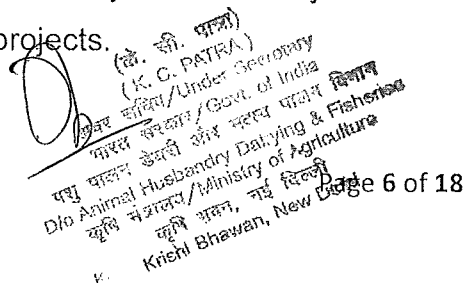 projects.
(के. सी. पात्रा)
(K. C. PATRA)
अवर सचिव/Under Secretary
भारत सरकार/Govt. of India
पशु पालन डेयरी और मत्स्य पालन विभाग
D/o Animal Husbandry Dairying & Fisheries
कृषि मंत्रालय/Ministry of Agriculture
कृषि भवन, नई दिल्ली
Krishi Bhawan, New Delhi
Page 6 of 18